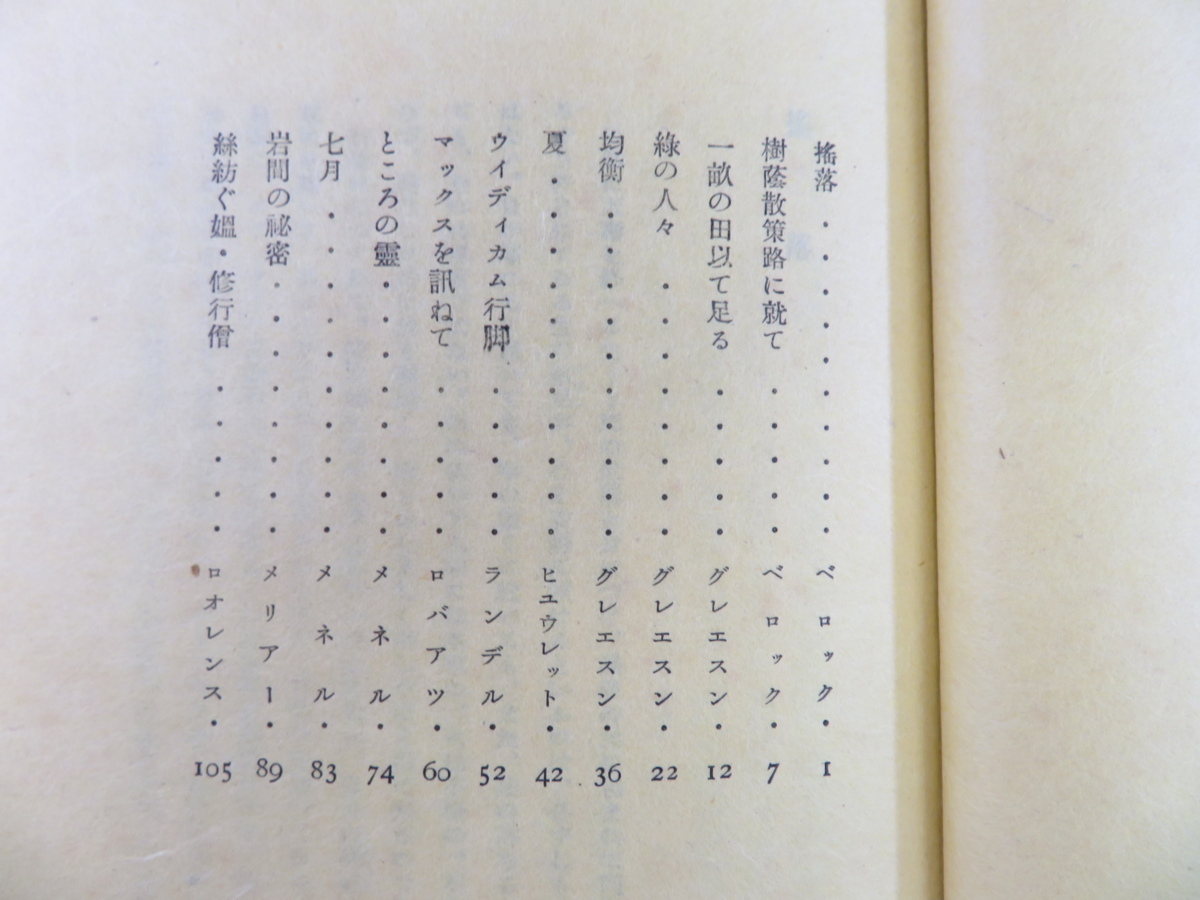 搖落・・・・・・・・・・ベロック・1
樹蔭散策路に就て・・・・・ベロック・7
一畝の田以て足る・・・・・グレエスン・12
綠の人々・・・・・・・・グレエスン・22
均衡・・・・・・・・・・グレエスン・36
夏・・・・・・・・・・・ヒユウレット・42
ウイディカム行脚・・・・・ランデル・52
マックスを訊ねて・・・・・ロバアツ・60
ところの靈・・・・・・・・メネル・74
七月・・・・・・・・・・メネル・83
岩間の祕密・・・・・・・・メリアー・89
絲紡ぐ媼・修行僧・・・・・ロオレンス・105